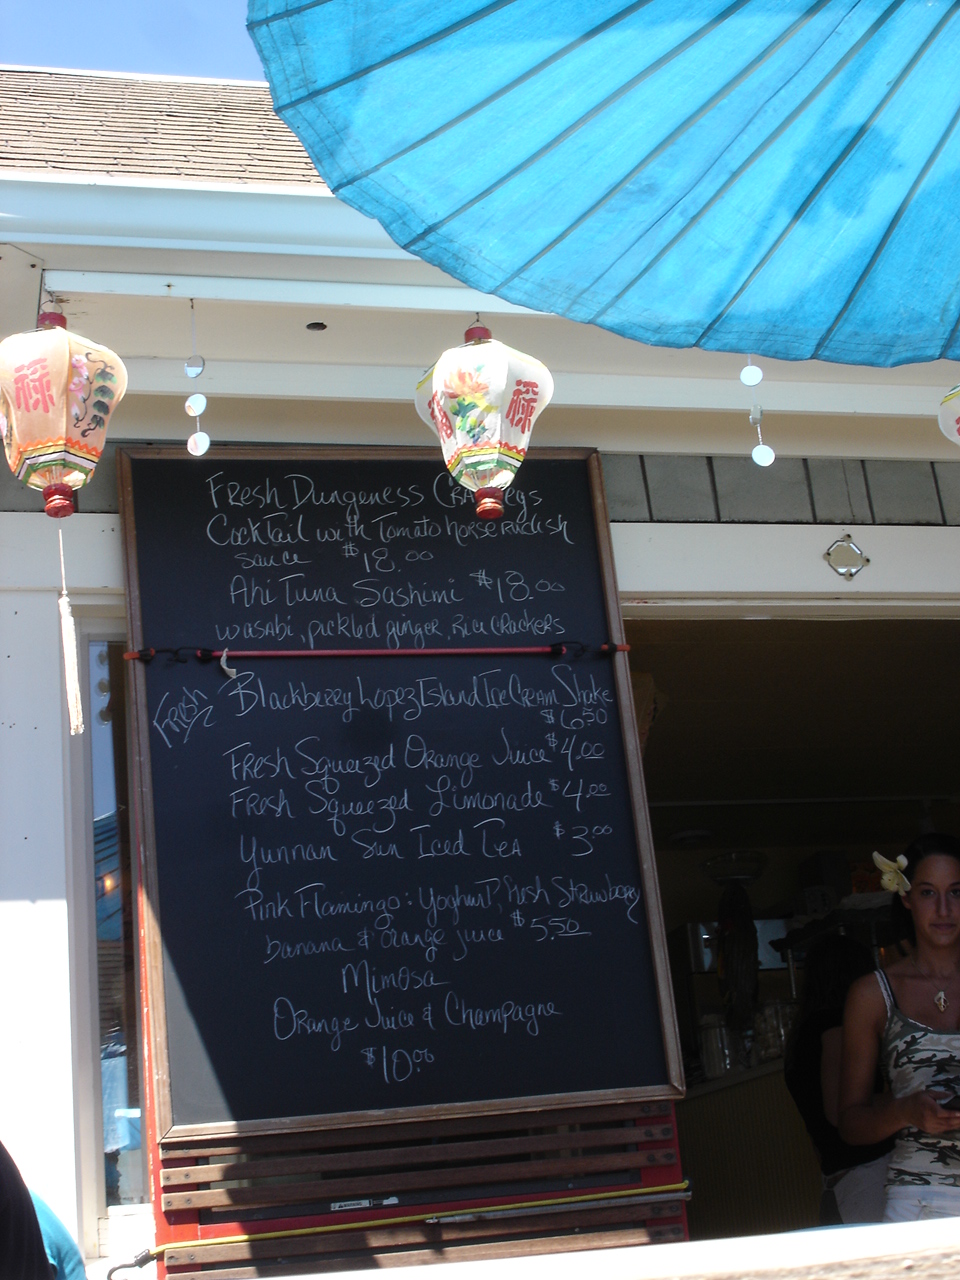 禄
福
禄
Fresh Dungeness Crab legs
Cocktail with Tomato horseradish
sauce $18.00
Ahi Tuna Sashimi $18.00
wasabi, pickled ginger, Rice Crackers
Fresh Blackberry Lopez Island Ice Cream Shake
$6.50
Fresh Squeezed Orange Juice $4.00
Fresh Squeezed Limonade $4.00
Yunnan Sun Iced Tea $3.00
Pink Flamingo: Yoghurt, fresh Strawberry
banana & orange juice $5.50
Mimosa
Orange Juice & Champagne
$10.00